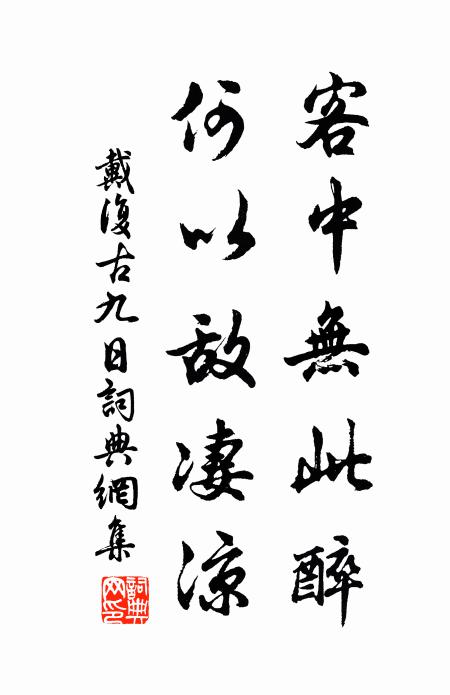 客中無此醉
何以敵凄涼
戴復古九日詞典網集
詞典
网印